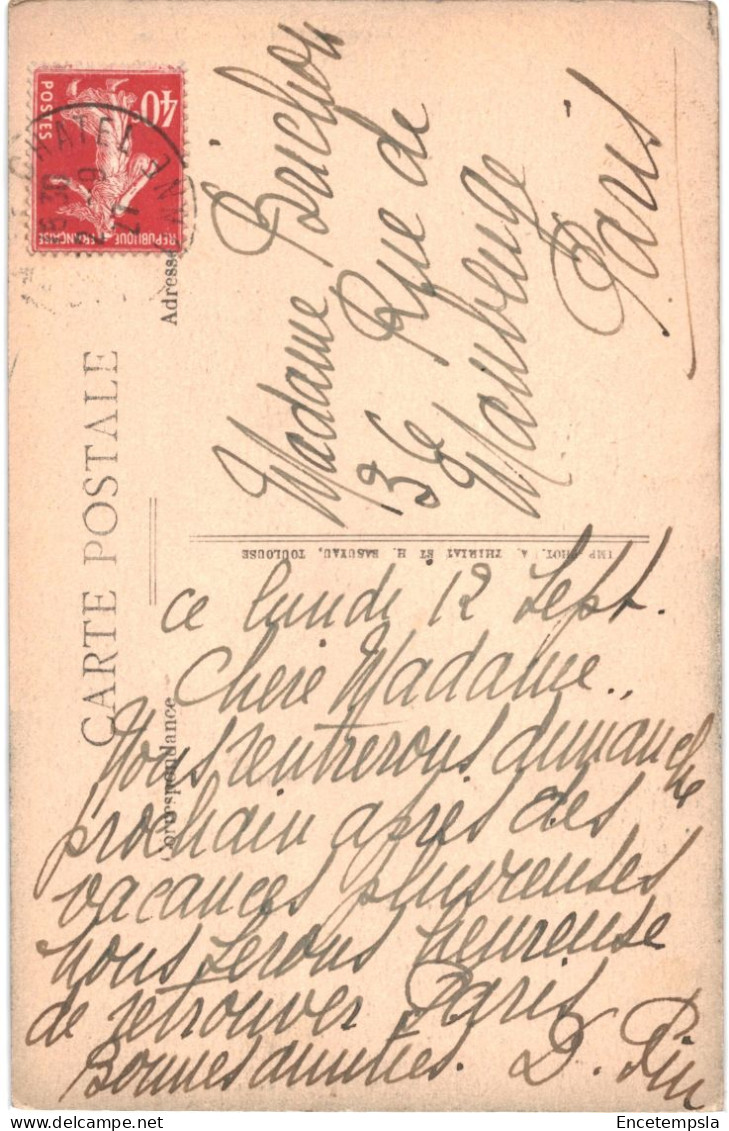 40
POSTES
REPUBLIQUE FRANÇAISE
CHATEL
9
27
CARTE POSTALE
Adresse
Correspondance
Madame Brichon
36 Rue de
Maubeuge
Paris
IMP. PHOT. A. THIRIAT ET H. BASUYAU, TOULOUSE
ce lundi 12 Sept.
Chere Madame,,
Nous rentrerons dimanche
prochain apres des
vacances pluvieuses
nous serons heureuse
de retrouver Paris
Bonnes amities. D. Pin
Encetempsla